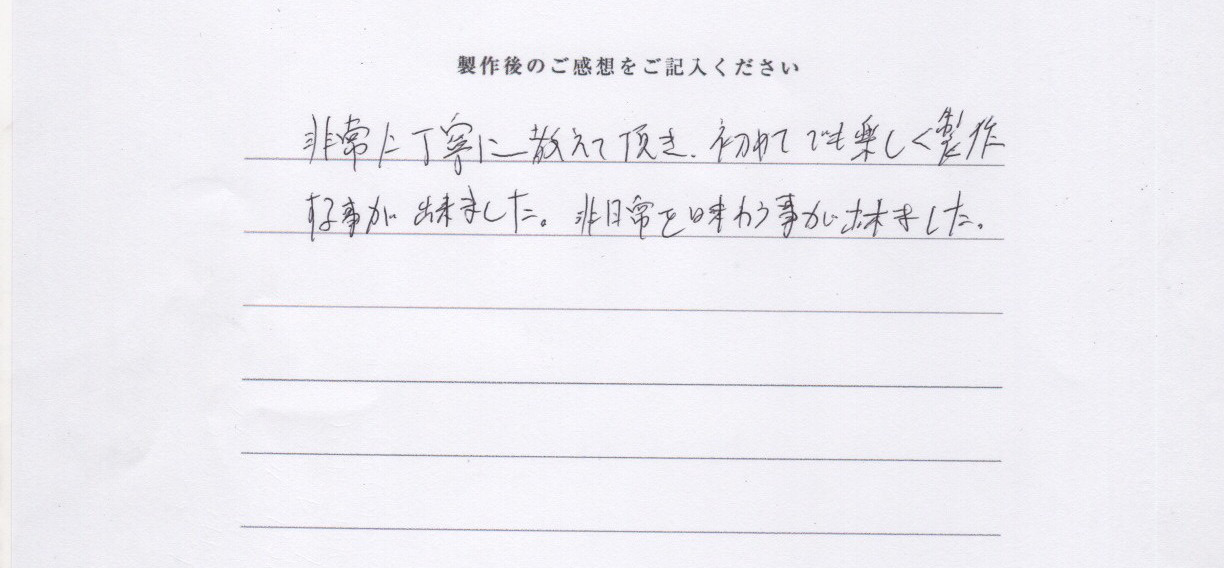 製作後のご感想をご記入ください
非常に丁寧に教えて頂き、初めてでも楽しく製作
する事が出来ました。非日常を味わう事が出来ました。